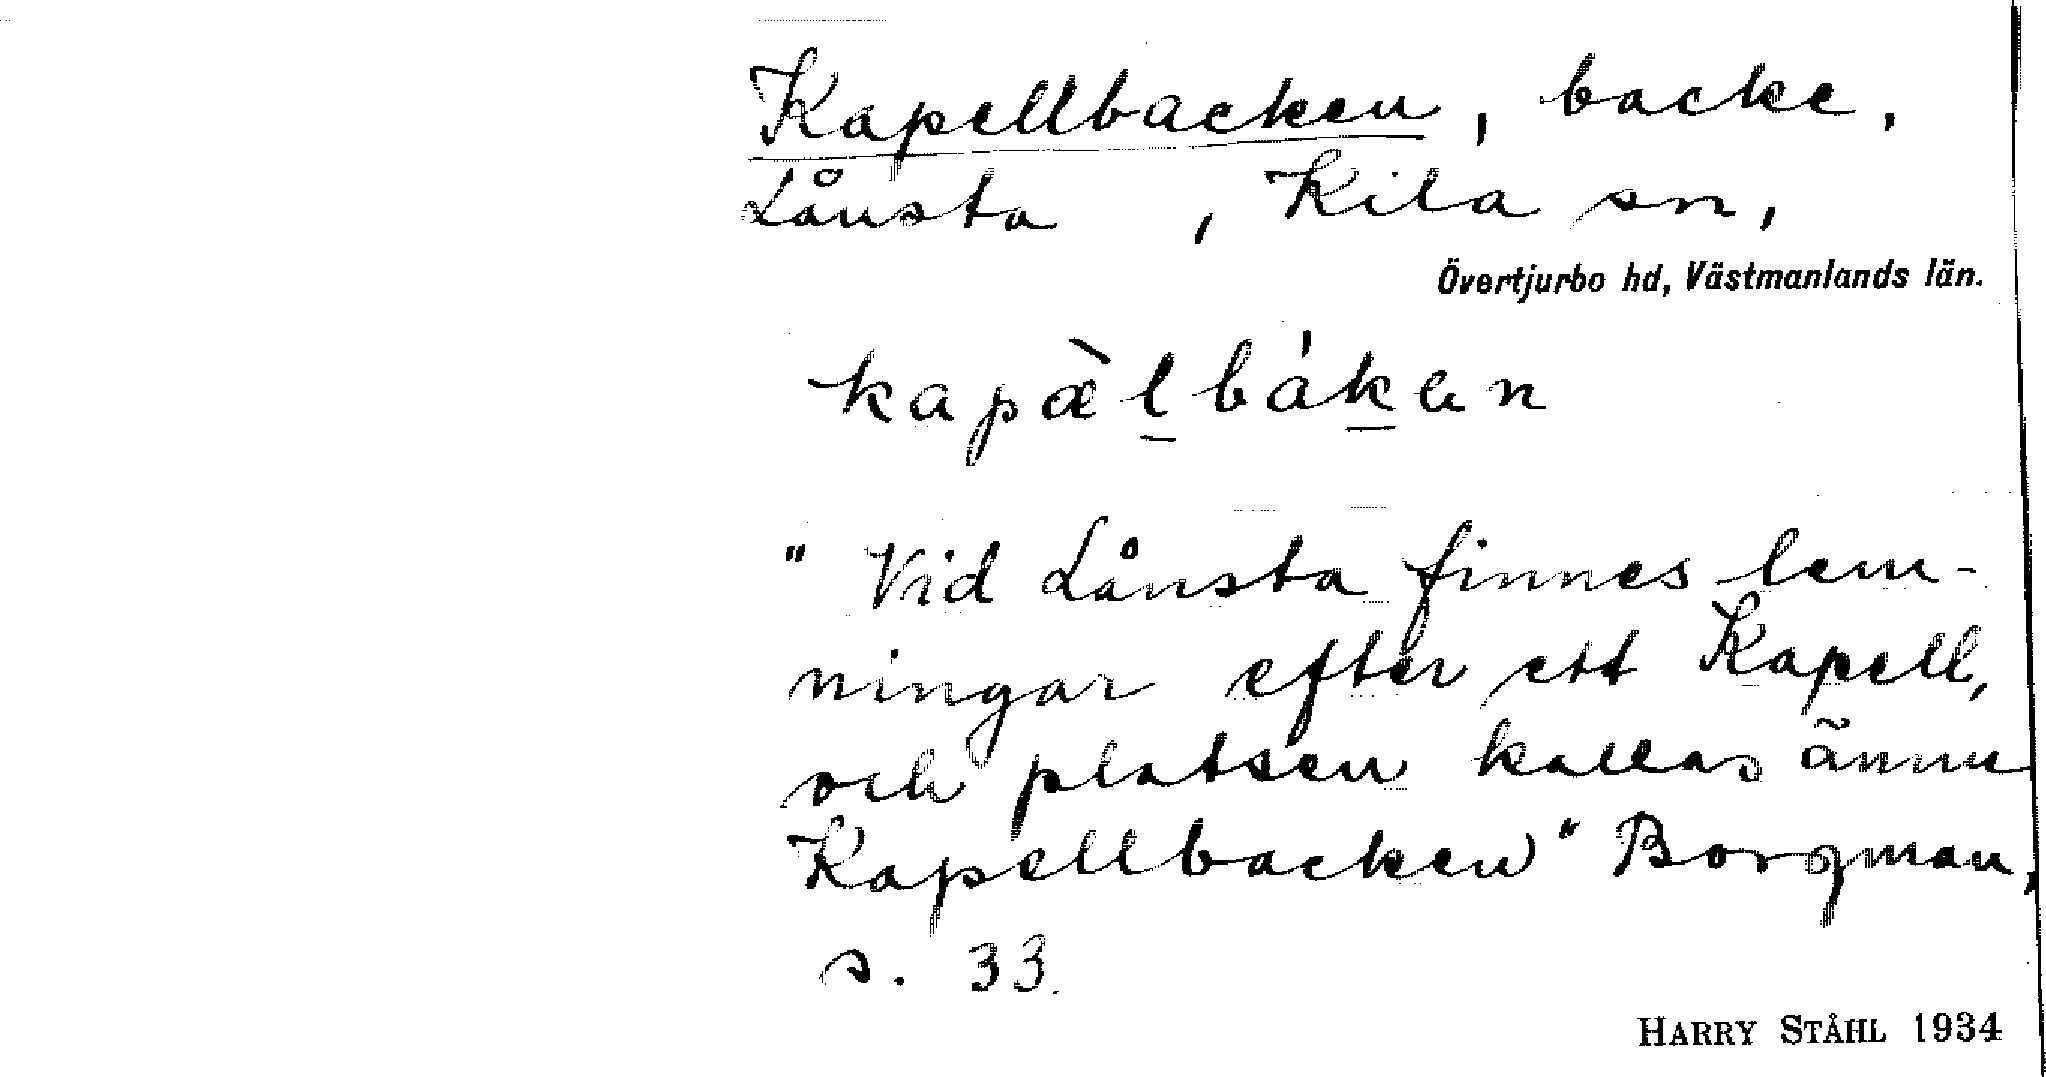 Kapellbacken, backe,
Lånsta, Kila sn,
Övertjurbo hd, Västmanlands län.
kapæ̀l̲bák̲ɐn
" Vid Lånsta finnes lem-
ningar efter ett Kapell,
och platsen kallas ännu
Kapellbacken" Borgman,
s. 33.
HARRY STÅHL 1934